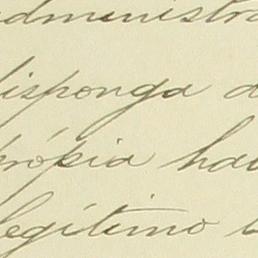 administra
disponga d
própia hac
legítimo